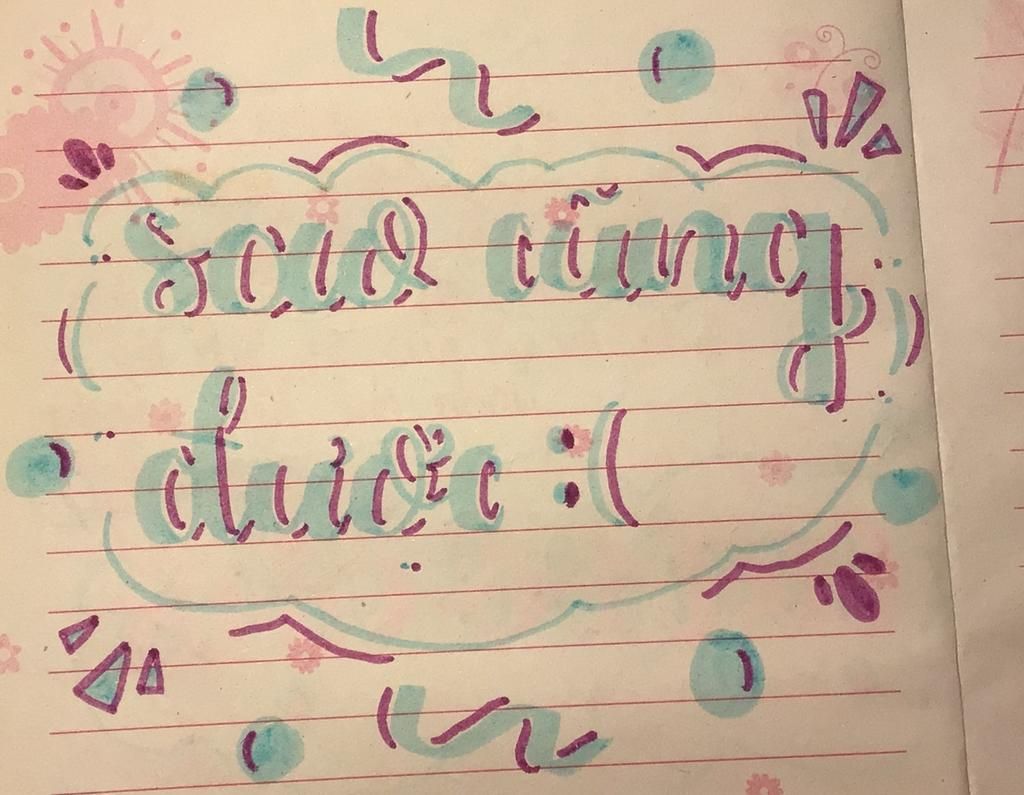 sao cũng
được :(